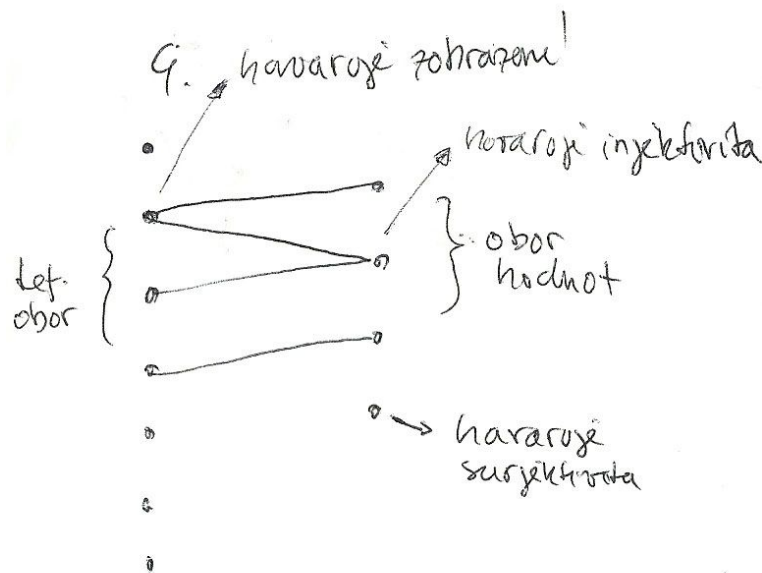 G. havaruje zobrazení
havaruje injektivita
def.
obor
obor
hodnot
havaruje
surjektivita